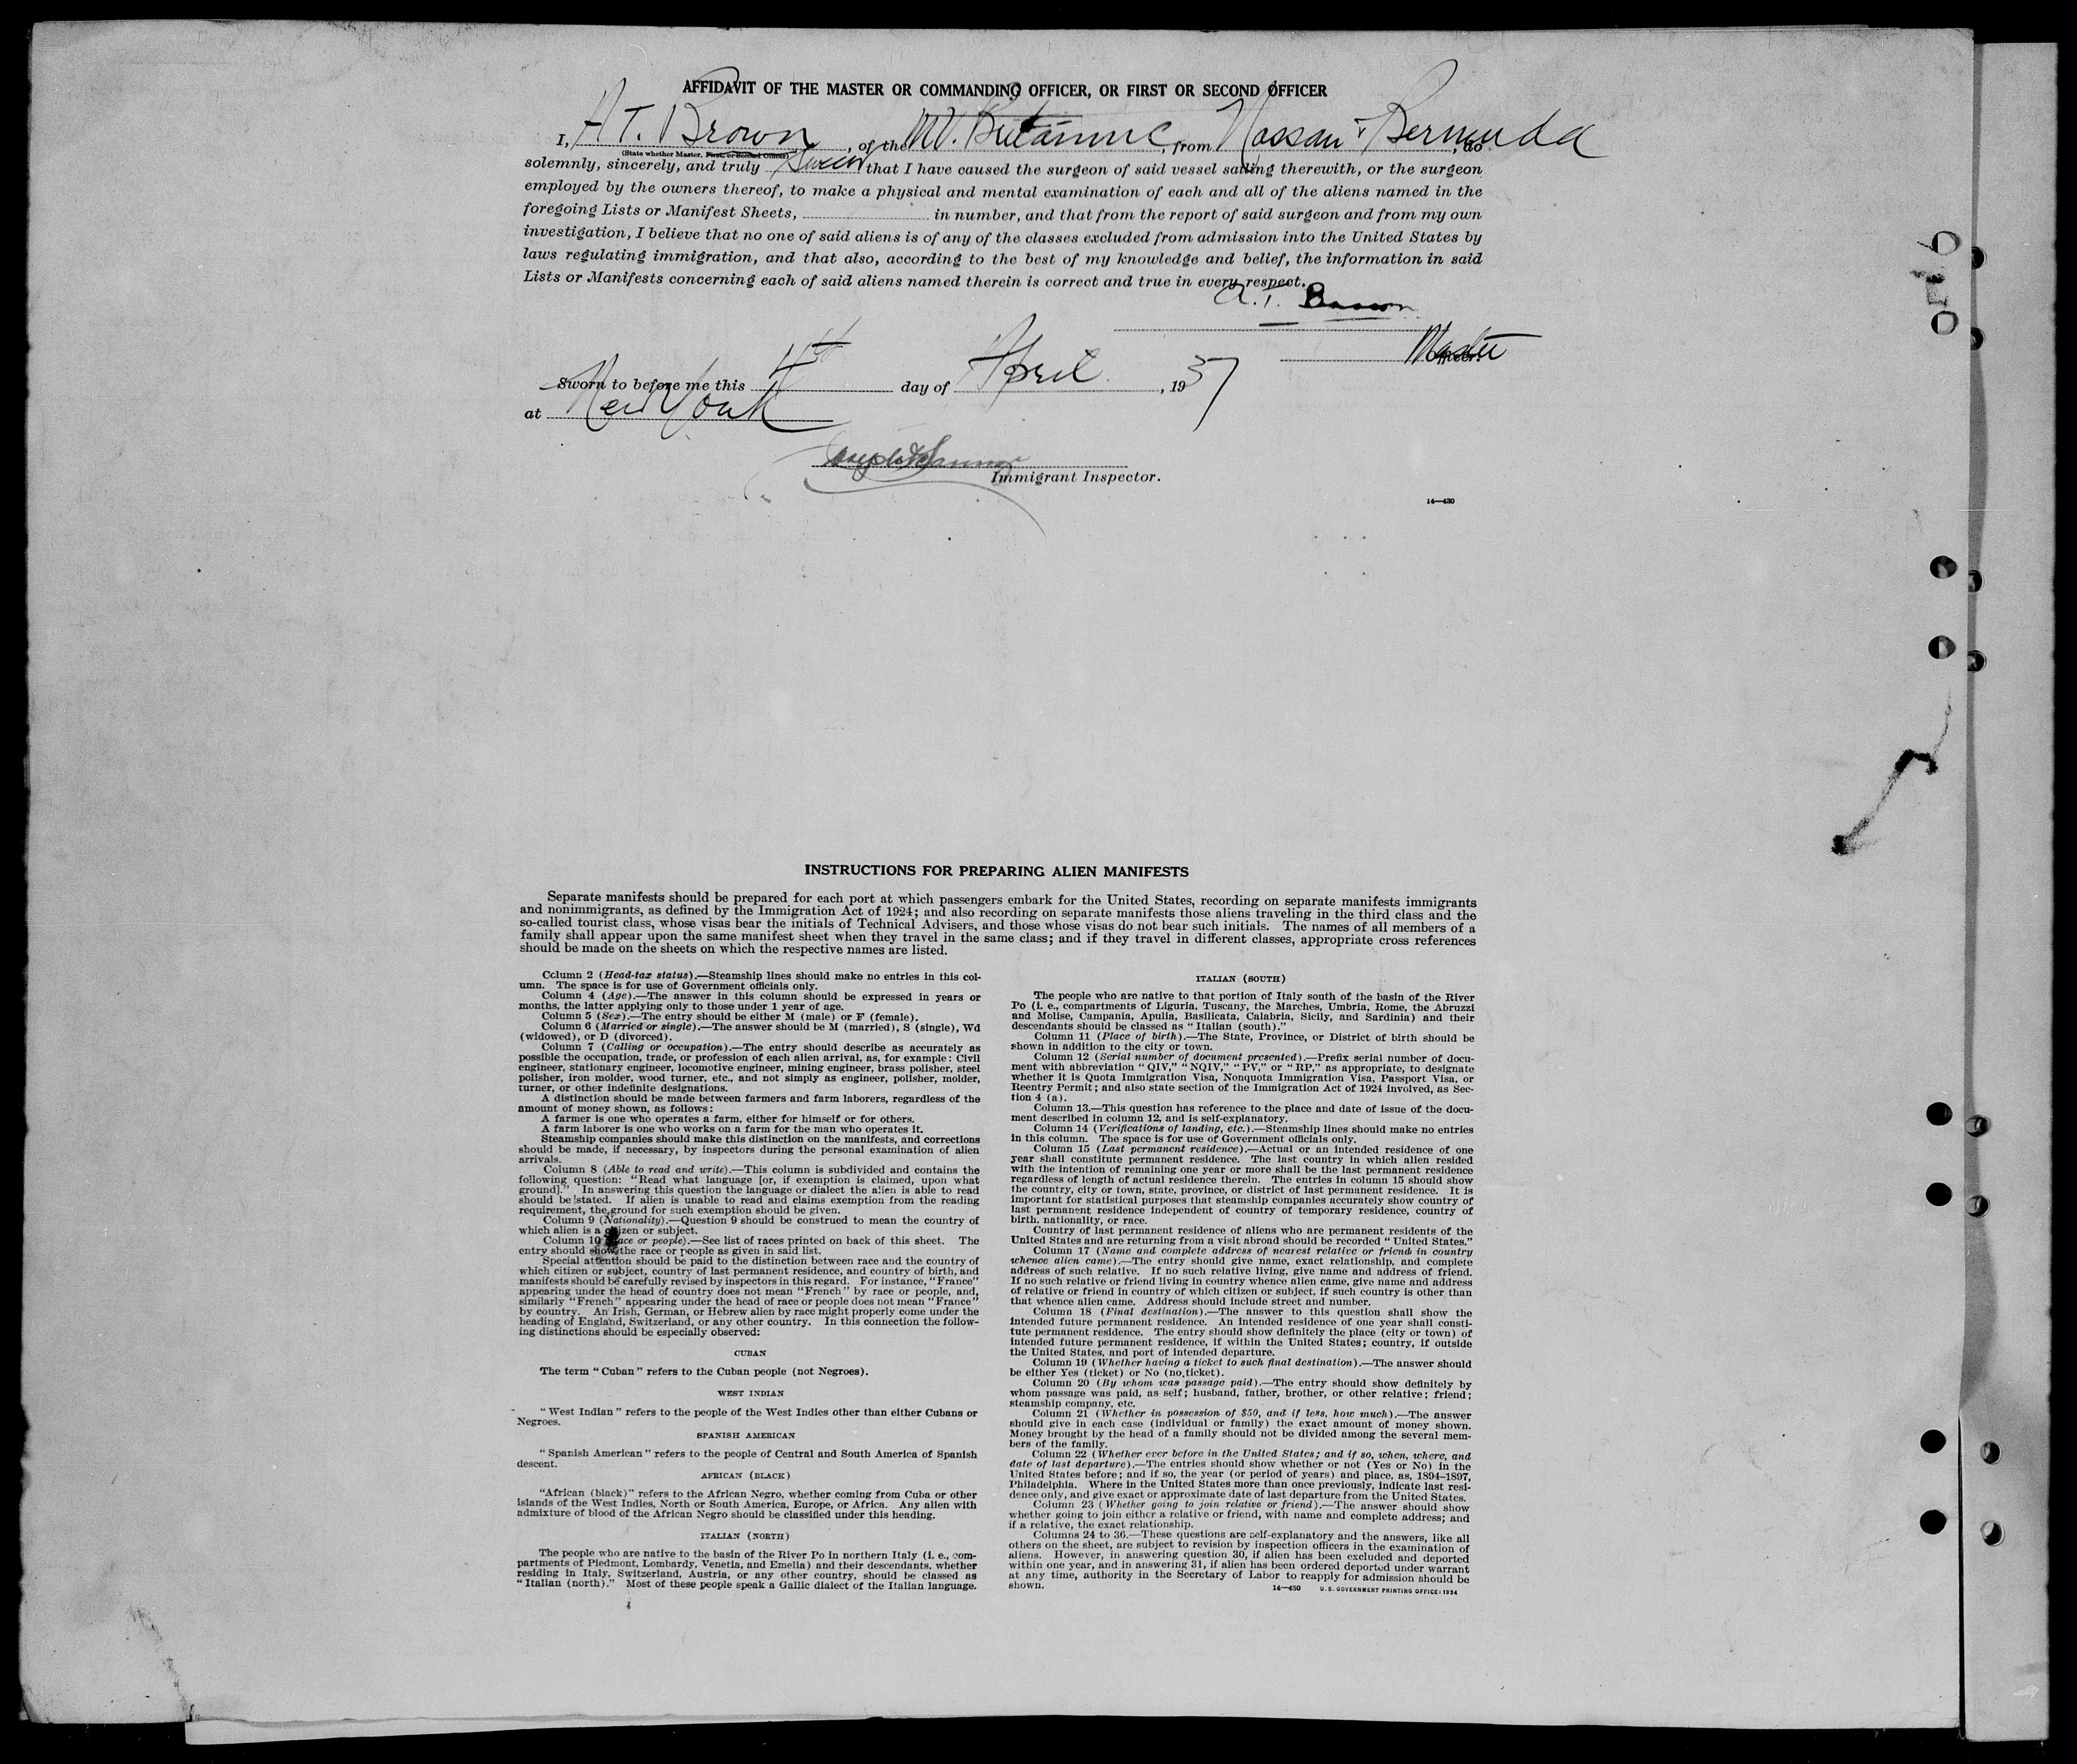 AFFIDAVIT OF THE MASTER OR COMMANDING OFFICER, OR FIRST OR SECOND OFFICER
I, A T. Brown, of the MV. Britannic, from Nassau & Bermuda, do
(State whether Master, First, or Second Officer)
solemnly, sincerely, and truly swear that I have caused the surgeon of said vessel sailing therewith, or the surgeon
employed by the owners thereof, to make a physical and mental examination of each and all of the aliens named in the
foregoing Lists or Manifest Sheets, in number, and that from the report of said surgeon and from my own
investigation, I believe that no one of said aliens is of any of the classes excluded from admission into the United States by
laws regulating immigration, and that also, according to the best of my knowledge and belief, the information in said
Lists or Manifests concerning each of said aliens named therein is correct and true in every respect.
A. T. Brown
Master
Officer.
Sworn to before me this 4th day of April, 1937
at New York
Immigrant Inspector.
14—430
INSTRUCTIONS FOR PREPARING ALIEN MANIFESTS
Separate manifests should be prepared for each port at which passengers embark for the United States, recording on separate manifests immigrants
and nonimmigrants, as defined by the Immigration Act of 1924; and also recording on separate manifests those aliens traveling in the third class and the
so-called tourist class, whose visas bear the initials of Technical Advisers, and those whose visas do not bear such initials. The names of all members of a
family shall appear upon the same manifest sheet when they travel in the same class; and if they travel in different classes, appropriate cross references
should be made on the sheets on which the respective names are listed.
Column 2 (Head-tax status).—Steamship lines should make no entries in this col-
umn. The space is for use of Government officials only.
Column 4 (Age).—The answer in this column should be expressed in years or
months, the latter applying only to those under 1 year of age.
Column 5 (Sex).—The entry should be either M (male) or F (female).
Column 6 (Married or single).—The answer should be M (married), S (single), Wd
(widowed), or D (divorced).
Column 7 (Calling or occupation).—The entry should describe as accurately as
possible the occupation, trade, or profession of each alien arrival, as, for example: Civil
engineer, stationary engineer, locomotive engineer, mining engineer, brass polisher, steel
polisher, iron molder, wood turner, etc., and not simply as engineer, polisher, molder,
turner, or other indefinite designations.
A distinction should be made between farmers and farm laborers, regardless of the
amount of money shown, as follows:
A farmer is one who operates a farm, either for himself or for others.
A farm laborer is one who works on a farm for the man who operates it.
Steamship companies should make this distinction on the manifests, and corrections
should be made, if necessary, by inspectors during the personal examination of alien
arrivals.
Column 8 (Able to read and write).—This column is subdivided and contains the
following question: "Read what language [or, if exemption is claimed, upon what
ground]." In answering this question the language or dialect the alien is able to read
should be stated. If alien is unable to read and claims exemption from the reading
requirement, the ground for such exemption should be given.
Column 9 (Nationality).—Question 9 should be construed to mean the country of
which alien is a citizen or subject.
Column 10 (Race or people).—See list of races printed on back of this sheet. The
entry should show the race or people as given in said list.
Special attention should be paid to the distinction between race and the country of
which citizen or subject, country of last permanent residence, and country of birth, and
manifests should be carefully revised by inspectors in this regard. For instance, "France"
appearing under the head of country does not mean "French" by race or people, and,
similarly "French" appearing under the head of race or people does not mean "France"
by country. An Irish, German, or Hebrew alien by race might properly come under the
heading of England, Switzerland, or any other country. In this connection the follow-
ing distinctions should be especially observed:
CUBAN
The term "Cuban" refers to the Cuban people (not Negroes).
WEST INDIAN
"West Indian" refers to the people of the West Indies other than either Cubans or
Negroes.
SPANISH AMERICAN
"Spanish American" refers to the people of Central and South America of Spanish
descent.
AFRICAN (BLACK)
"African (black)" refers to the African Negro, whether coming from Cuba or other
islands of the West Indies, North or South America, Europe, or Africa. Any alien with
admixture of blood of the African Negro should be classified under this heading.
ITALIAN (NORTH)
The people who are native to the basin of the River Po in northern Italy (i. e., com-
partments of Piedmont, Lombardy, Venetia, and Emelia) and their descendants, whether
residing in Italy, Switzerland, Austria, or any other country, should be classed as
"Italian (north)." Most of these people speak a Gallic dialect of the Italian language.
ITALIAN (SOUTH)
The people who are native to that portion of Italy south of the basin of the River
Po (i. e., compartments of Liguria, Tuscany, the Marches, Umbria, Rome, the Abruzzi
and Molise, Campania, Apulia, Basilicata, Calabria, Sicily, and Sardinia) and their
descendants should be classed as "Italian (south)."
Column 11 (Place of birth).—The State, Province, or District of birth should be
shown in addition to the city or town.
Column 12 (Serial number of document presented).—Prefix serial number of docu-
ment with abbreviation "QIV," "NQIV," "PV," or "RP," as appropriate, to designate
whether it is Quota Immigration Visa, Nonquota Immigration Visa, Passport Visa, or
Reentry Permit; and also state section of the Immigration Act of 1924 involved, as Sec-
tion 4 (a).
Column 13.—This question has reference to the place and date of issue of the docu-
ment described in column 12, and is self-explanatory.
Column 14 (Verifications of landing, etc.).—Steamship lines should make no entries
in this column. The space is for use of Government officials only.
Column 15 (Last permanent residence).—Actual or an intended residence of one
year shall constitute permanent residence. The last country in which alien resided
with the intention of remaining one year or more shall be the last permanent residence
regardless of length of actual residence therein. The entries in column 15 should show
the country, city or town, state, province, or district of last permanent residence. It is
important for statistical purposes that steamship companies accurately show country of
last permanent residence independent of country of temporary residence, country of
birth, nationality, or race.
Country of last permanent residence of aliens who are permanent residents of the
United States and are returning from a visit abroad should be recorded "United States."
Column 17 (Name and complete address of nearest relative or friend in country
whence alien came).—The entry should give name, exact relationship, and complete
address of such relative. If no such relative living, give name and address of friend.
If no such relative or friend living in country whence alien came, give name and address
of relative or friend in country of which citizen or subject, if such country is other than
that whence alien came. Address should include street and number.
Column 18 (Final destination).—The answer to this question shall show the
intended future permanent residence. An intended residence of one year shall consti-
tute permanent residence. The entry should show definitely the place (city or town) of
intended future permanent residence, if within the United States; country, if outside
the United States, and port of intended departure.
Column 19 (Whether having a ticket to such final destination).—The answer should
be either Yes (ticket) or No (no ticket).
Column 20 (By whom was passage paid).—The entry should show definitely by
whom passage was paid, as self; husband, father, brother, or other relative; friend;
steamship company, etc.
Column 21 (Whether in possession of $50, and if less, how much).—The answer
should give in each case (individual or family) the exact amount of money shown.
Money brought by the head of a family should not be divided among the several mem-
bers of the family.
Column 22 (Whether ever before in the United States; and if so, when, where, and
date of last departure).—The entries should show whether or not (Yes or No) in the
United States before; and if so, the year (or period of years) and place, as, 1894–1897,
Philadelphia. Where in the United States more than once previously, indicate last resi-
dence only, and give exact or approximate date of last departure from the United States.
Column 23 (Whether going to join relative or friend).—The answer should show
whether going to join either a relative or friend, with name and complete address; and
if a relative, the exact relationship.
Columns 24 to 36.—These questions are self-explanatory and the answers, like all
others on the sheet, are subject to revision by inspection officers in the examination of
aliens. However, in answering question 30, if alien has been excluded and deported
within one year, and in answering 31, if alien has been ordered deported under warrant
at any time, authority in the Secretary of Labor to reapply for admission should be
shown.
14—430 U. S. GOVERNMENT PRINTING OFFICE: 1934